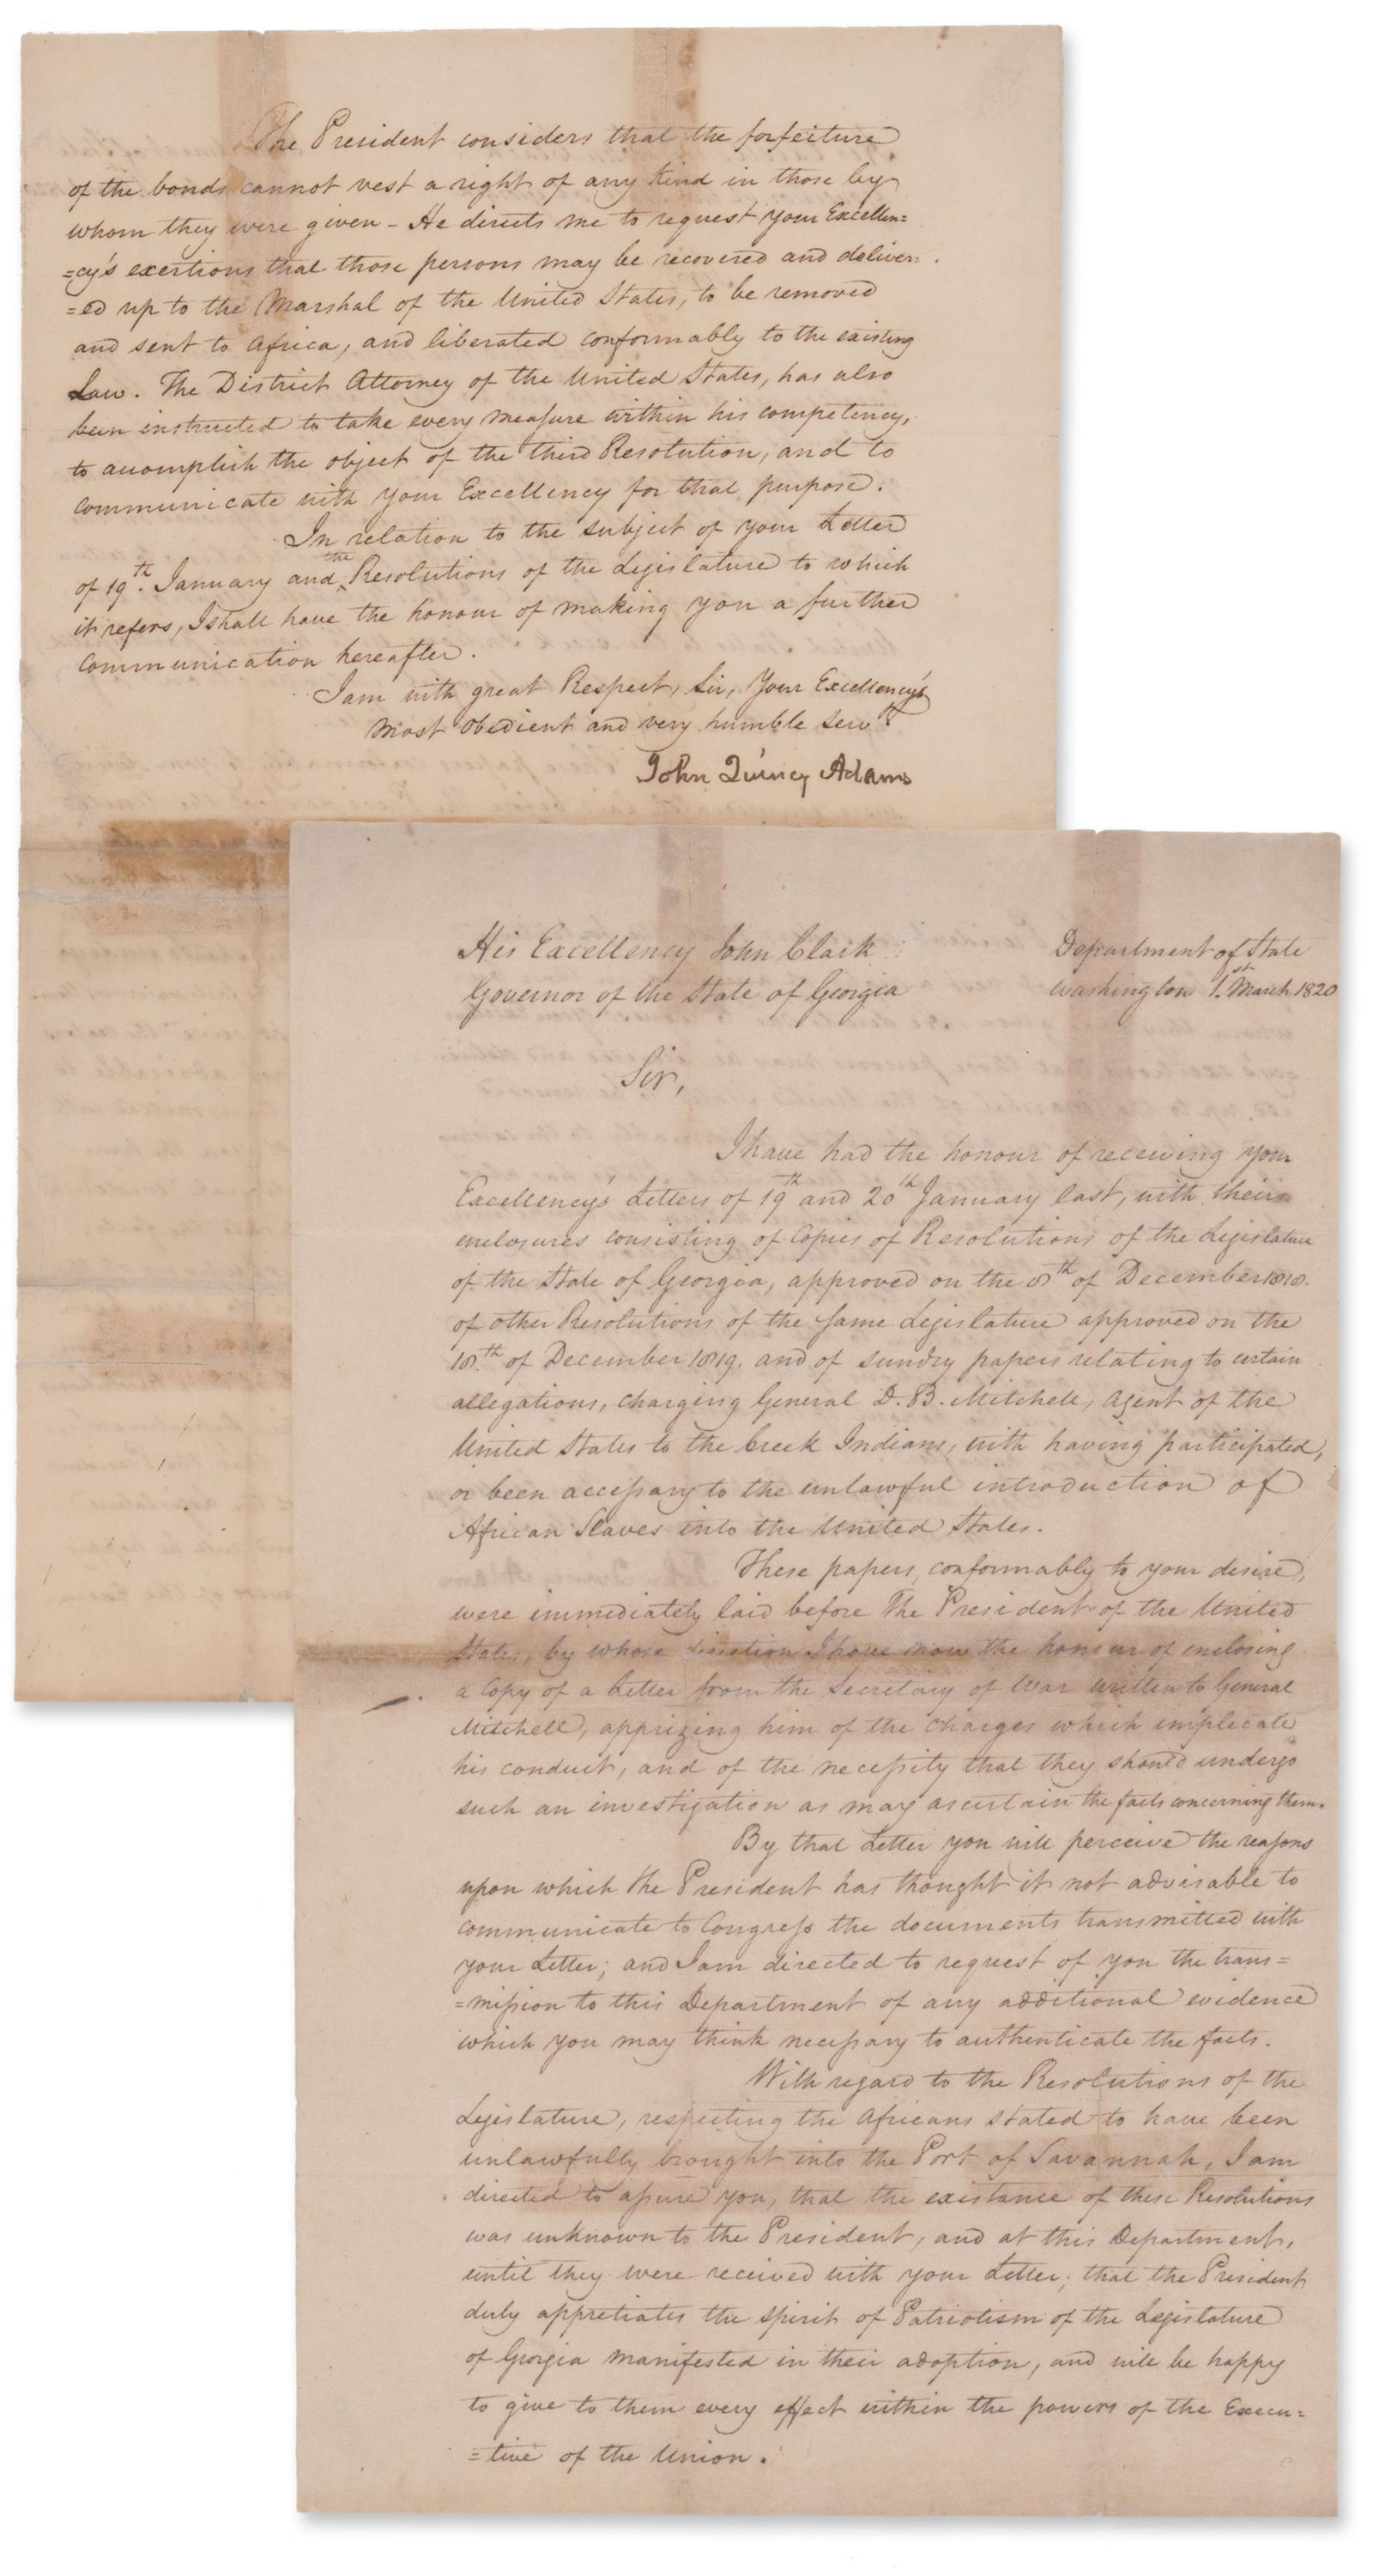 The President considers that the forfeiture
of the bonds cannot vest a right of any kind in those by
whom they were given - He directs me to request your Excellen=
=cy's exertions that those persons may be recovered and deliver=
=ed up to the Marshal of the United States, to be removed
and sent to Africa, and liberated conformably to the existing
Law. The District Attorney of the United States, has also
been instructed to take every measure within his competency,
to accomplish the object of the third Resolution, and to
communicate with your Excellency for that purpose.
In relation to the subject of your Letter
of 19th. January and the Resolutions of the Legislature to which
it refers, I shall have the honour of making you a further
communication hereafter.
I am with great Respect, Sir, Your Excellency's
most obedient and very humble servt.
John Quincy Adams
His Excellency John Clark
Governor of the State of Georgia
Department of State
Washington 1st. March 1820
Sir,
I have had the honour of receiving your
Excellency's Letters of 19th and 20th January last, with their
enclosures consisting of Copies of Resolutions of the Legislature
of the State of Georgia, approved on the 8th of December 1818.
of other Resolutions of the same Legislature approved on the
18.th of December 1819. and of sundry papers relating to certain
allegations, charging General D. B. Mitchell, Agent of the
United States to the Creek Indians, with having participated,
or been accessary to the unlawful introduction of
African Slaves into the United States.
These papers, conformably to your desire,
were immediately laid before The President of the United
States, by whose direction I have now the honour of enclosing
a Copy of a Letter from the Secretary of War written to General
Mitchell, apprizing him of the charges which implicate
his conduct, and of the necessity that they should undergo
such an investigation as may ascertain the facts concerning them.
By that Letter you will perceive the reasons
upon which the President has thought it not advisable to
communicate to Congress the documents transmitted with
your Letter; and I am directed to request of you the trans=
=mission to this Department of any additional evidence
which you may think necessary to authenticate the facts.
With regard to the Resolutions of the
Legislature, respecting the Africans stated to have been
unlawfully brought into the Port of Savannah, I am
directed to assure you, that the existance of these Resolutions
was unknown to the President, and at this Department,
until they were received with your Letter; that the President
duly appretiates the spirit of Patriotism of the Legislature
of Georgia manifested in their adoption, and will be happy
to give to them every effect within the powers of the Execu=
=tive of the Union.